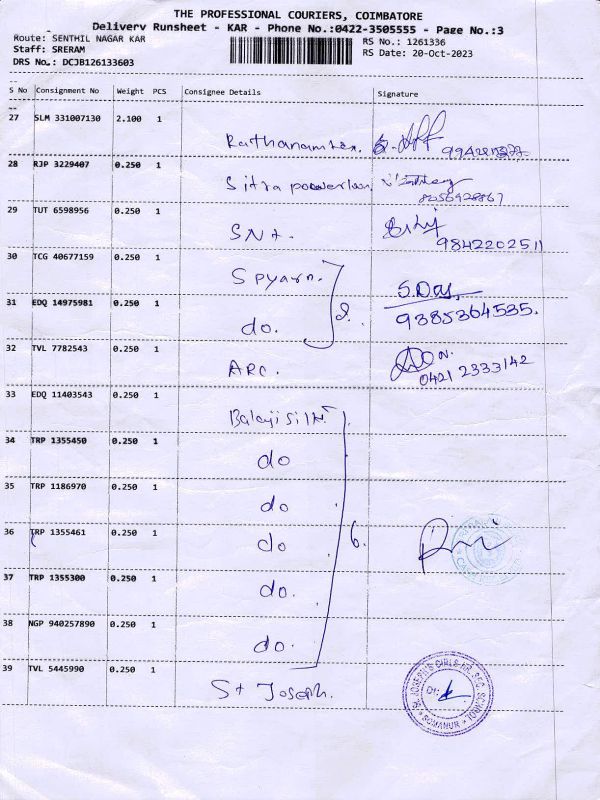 THE PROFESSIONAL COURIERS, COIMBATORE
Delivery Runsheet - KAR - Phone No.:0422-3505555 - Page No.:3
Route: SENTHIL NAGAR KAR
RS No.: 1261336
Staff: SRERAM
RS Date: 20-Oct-2023
DRS No.: DCJB126133603
S No Consignment No Weight PCS Consignee Details Signature
27 SLM 331007130 2.100 1
28 RJP 3229407 0.250 1
Sitra
8056928867
29 TUT 6598956 0.250 1
9842202511
30 TCG 40677159 0.250 1
Spyarn.
S.Das.
31 EDQ 14975981 0.250 1
do. 2.
9385364535.
32 TVL 7782543 0.250 1
ARC.
0421 2333142
33 EDQ 11403543 0.250 1
Balaji
34 TRP 1355450 0.250 1
do
35 TRP 1186970 0.250 1
do
36 TRP 1355461 0.250 1
do 6.
37 TRP 1355300 0.250 1
do.
38 NGP 940257890 0.250 1
do.
39 TVL 5445990 0.250 1
St Joseph.
ST. JOSEPH'S GIRLS HR. SEC. SCHOOL